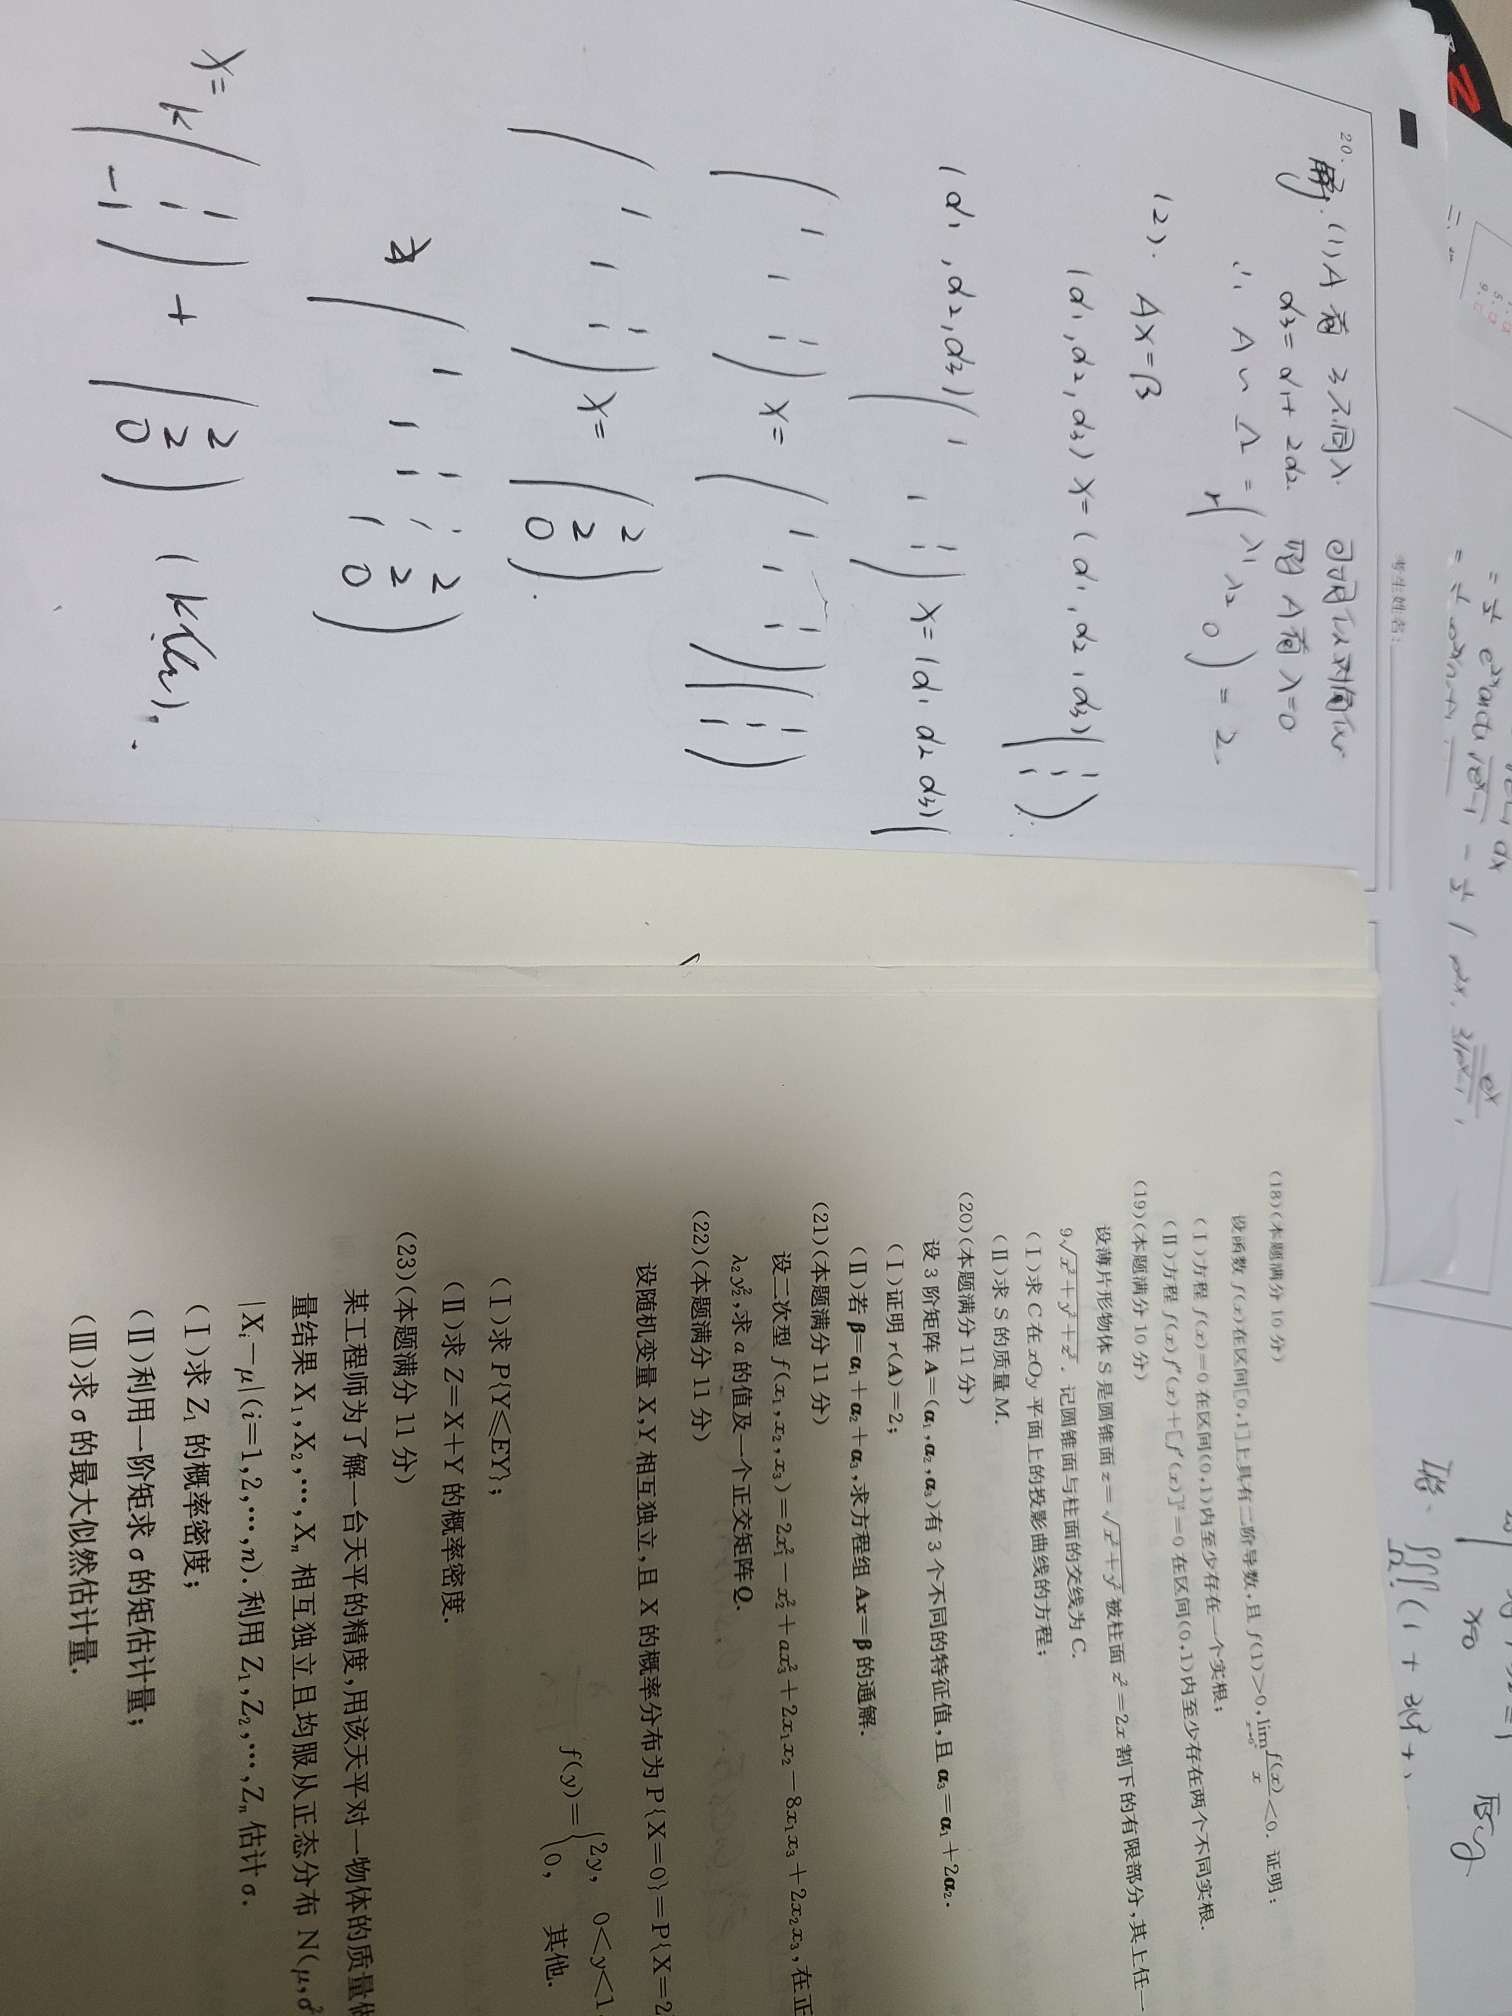 20.
解. (1) A有 3个不同λ. 可以相似对角化
α3 = α1 + 2α2. 即 A有λ=0
∴ A ∽ Λ = r( λ1 λ2 0 ) = 2.
(2). AX = β
(α1, α2, α3) X = (α1, α2, α3) ( 1 1 1 ).
(α1, α2, α3) ( 1 1 1 1 ) X = (α1 α2 α3)
( 1 1 1 1 ) X = ( 1 1 1 1 ) ( 1 1 1 )
( 1 1 1 1 ) X = ( 2 2 0 ).
( 1 1 1 1 1 1 2 2 0 )
X = k ( 1 1 -1 ) + ( 2 2 0 )
考生姓名:
(18)(本题满分10分)
设函数 f(x)在区间[0,1]上具有二阶导数,且 f(1)>0, lim x→0⁺ f(x)/x <0. 证明:
(Ⅰ)方程 f(x)=0 在区间(0,1)内至少存在一个实根;
(Ⅱ)方程 f(x)f″(x)+[f′(x)]²=0 在区间(0,1)内至少存在两个不同实根.
(19)(本题满分10分)
设薄片形物体 S 是圆锥面 z=√x²+y² 被柱面 z²=2x 割下的有限部分,其上任一
9√x²+y²+z². 记圆锥面与柱面的交线为 C.
(Ⅰ)求 C 在 xOy 平面上的投影曲线的方程;
(Ⅱ)求 S 的质量 M.
(20)(本题满分11分)
设 3 阶矩阵 A=(α₁,α₂,α₃)有 3 个不同的特征值,且 α₃=α₁+2α₂.
(Ⅰ)证明 r(A)=2;
(Ⅱ)若 β=α₁+α₂+α₃,求方程组 Ax=β 的通解.
(21)(本题满分11分)
设二次型 f(x₁,x₂,x₃)=2x₁²−x₂²+ax₃²+2x₁x₂−8x₁x₃+2x₂x₃,在正
λ₂y₂²,求 a 的值及一个正交矩阵 Q.
(22)(本题满分11分)
设随机变量 X,Y 相互独立,且 X 的概率分布为 P{X=0}=P{X=2
f(y)={2y, 0<y<1
0, 其他.
(Ⅰ)求 P{Y≤EY};
(Ⅱ)求 Z=X+Y 的概率密度.
(23)(本题满分11分)
某工程师为了解一台天平的精度,用该天平对一物体的质量做
量结果 X₁,X₂,⋯,Xₙ 相互独立且均服从正态分布 N(μ,σ²
|Xᵢ−μ|(i=1,2,⋯,n).利用 Z₁,Z₂,⋯,Zₙ 估计 σ.
(Ⅰ)求 Z₁ 的概率密度;
(Ⅱ)利用一阶矩求 σ 的矩估计量;
(Ⅲ)求 σ 的最大似然估计量.